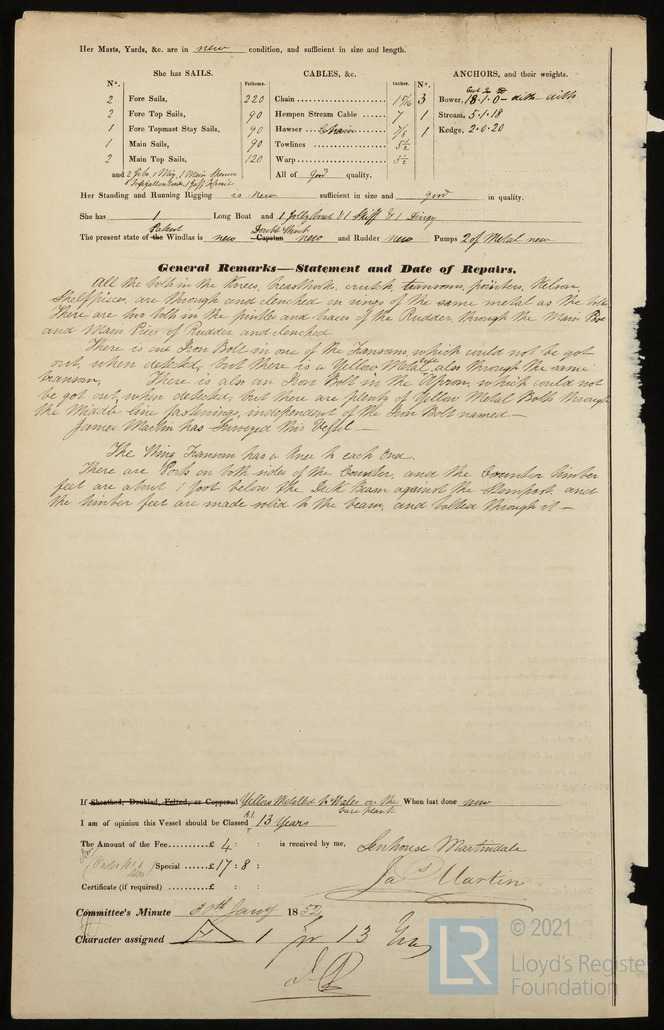 Her Masts, Yards, &c. are in new condition, and sufficient in size and length.
She has SAILS. CABLES, &c. ANCHORS, and their weights.
N°. Fathoms. Inches. N°.
2 Fore Sails, 220 Chain 1 5/16 3 Bower, 18.1.0 - ditto - ditto
2 Fore Top Sails, 90 Hempen Stream Cable 7 1 Stream, 5.1.18
1 Fore Topmast Stay Sails, 90 Hawser Chain 7/8 1 Kedge, 2.0.20
1 Main Sails, 90 Towlines 5½
2 Main Top Sails, 120 Warp 3½
and 2 Jibs, 1 Miz, 1 Main Spencer All of good quality.
Her Standing and Running Rigging is new sufficient in size and good in quality.
She has 1 Long Boat and 1 Jollyboat & 1 Skiff & 1
Patent Double
The present state of the Windlas is new Capstan new and Rudder new Pumps 2 of Metal new
General Remarks—Statement and Date of Repairs.
All the bolts in the Knees, breasthooks, crutch transoms, pointers, Kelson,
Shelfpieces, are through and clenched on rings of the same metal as the bolts
There are two bolts in the pintles and braces of the Rudder through the Main
and Main Piece of Rudder and clenched
There is one Iron Bolt in one of the Transoms, which could not be got
out, when detected, but there is a Yellow Metal also through the same
transom. There is also an Iron Bolt in the Apron, which could not
be got out, when detected, but there are plenty of Yellow Metal Bolts through
the Middle line fastenings, independent of the Iron Bolt named—
James Martin has Surveyed this Vessel—
The Wing Transom has a knee to each End.
There are Ports on both sides of the Counter, and the Counter timber
feet are about 1 foot below the Deck Beam against the Sternpost, and
the timber feet are made solid to the beam, and bolted through it—
If Sheathed, Doubled, Felted, or Coppered Yellow Metalled to Wales on the When last done new
I am of opinion this Vessel should be Classed A1 13 Years
The Amount of the Fee £ 4 : : is received by me, Senhouse Martindale
Special £ 17 : 8 : Jas Martin
Certificate (if required) £ : :
Committee's Minute 30th Jany 1852
Character assigned A 1 for 13 Yrs
LR © 2021
Lloyd's Register
Foundation